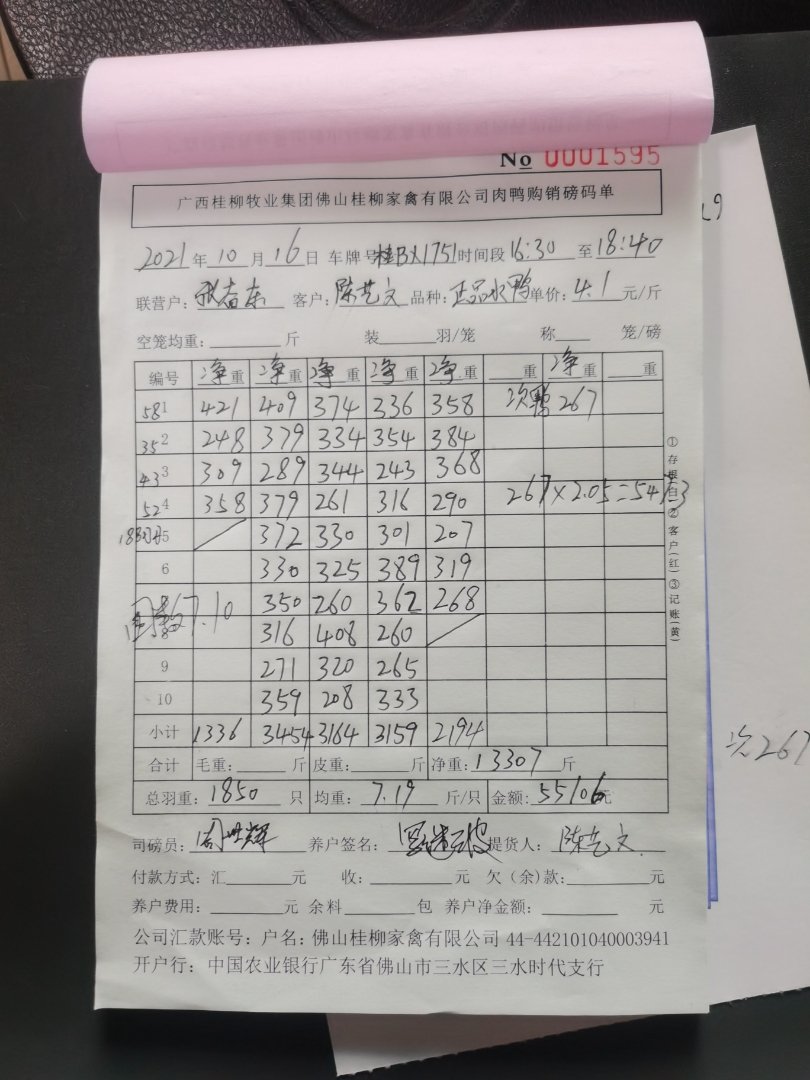 No 0001595
广西桂柳牧业集团佛山桂柳家禽有限公司肉鸭购销磅码单
2021年10月16日 车牌号桂BX1751时间段16:30至18:40
联营户: 客户:陈艺文 品种:正品水鸭 单价:4.1元/斤
空笼均重:斤 装羽/笼 称笼/磅
编号 净重 净重 净重 净重 净重 重 净重 重
58 1 421 409 374 336 358 次鸭 267
35 2 248 379 334 354 384
43 3 309 289 344 243 368
52 4 358 379 261 316 290 267×2.05=547.3
5 372 330 301 207
6 330 325 389 319
7.10 350 260 362 268
8 316 408 260
9 271 320 265
10 359 208 333
小计 1336 3454 3164 3159 2194
合计 毛重:斤 皮重:斤 净重:13307斤
总羽重:1850只 均重:7.19斤/只 金额:55106元
司磅员:周世辉 养户签名: 提货人:陈艺文
付款方式:汇元 收:元 欠(余)款:元
养户费用:元 余料包 养户净金额:元
公司汇款账号:户名:佛山桂柳家禽有限公司 44-442101040003941
开户行:中国农业银行广东省佛山市三水区三水时代支行
①存根(白)②客户(红)③记账(黄)
次267